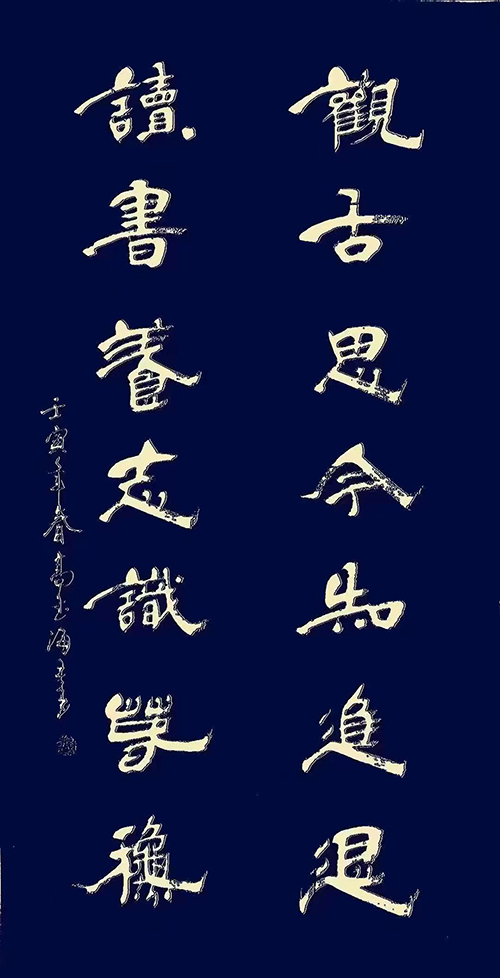 觀古思今知進退
讀書養志識
壬寅年春高玉海書